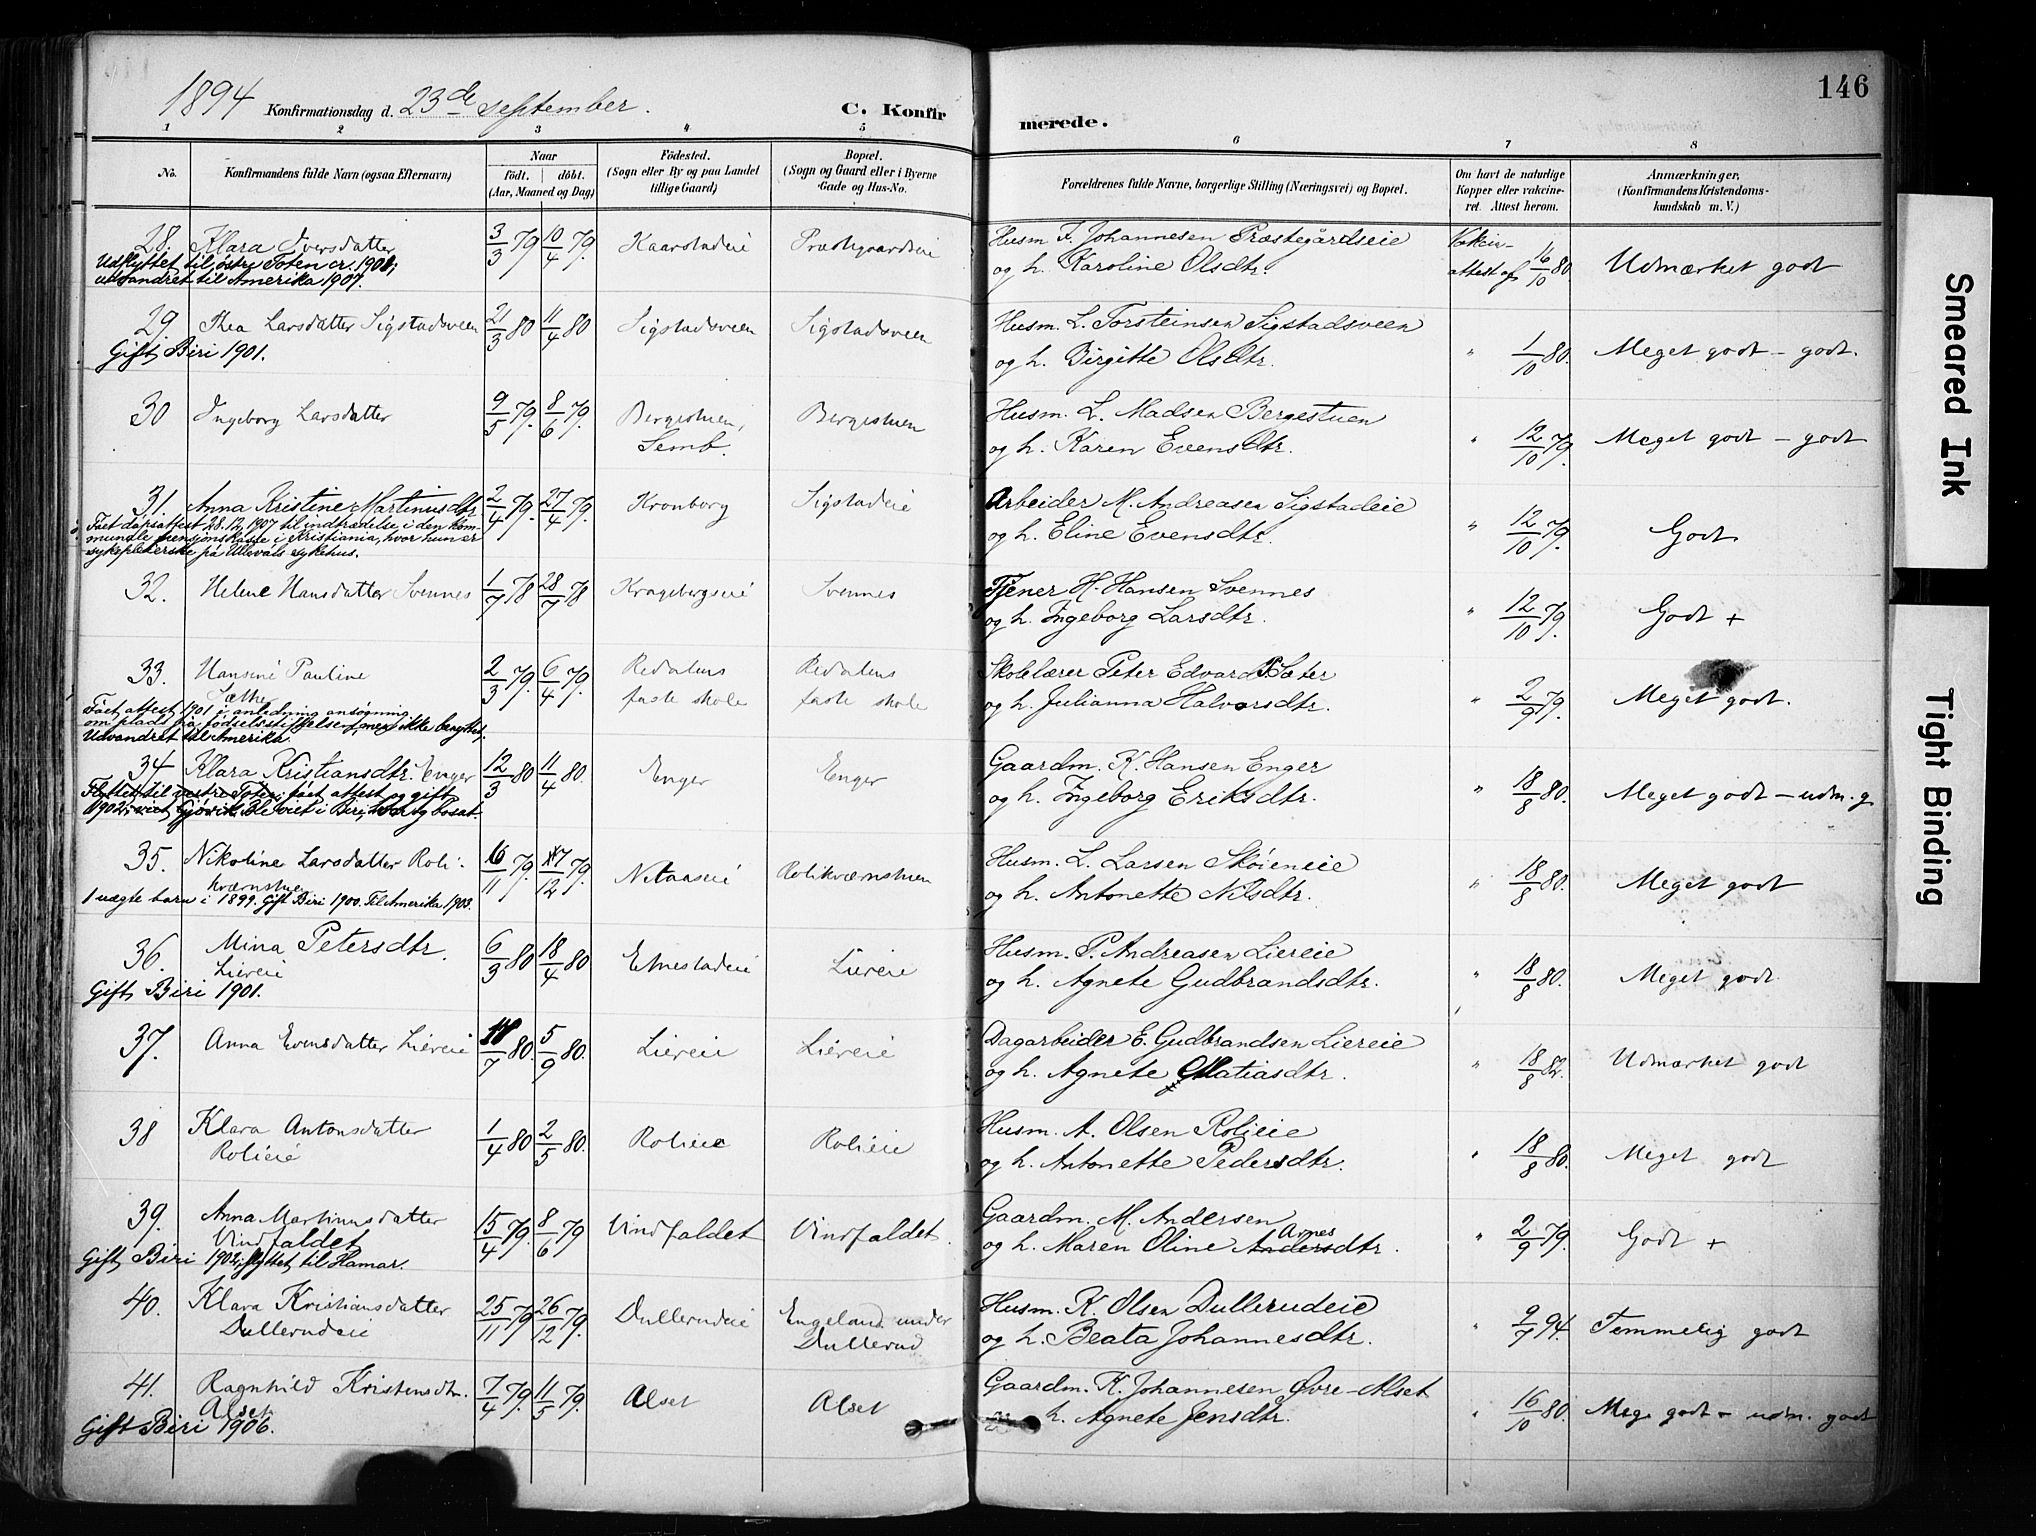 146
1894 Konfirmationsdag d. 23de september. C. Konfirmerede.
1 2 3 4 5 6 7 8
No. Konfirmandens fulde Navn (ogsaa Efternavn) Naar født. døbt. (Aar, Maaned og Dag) Fødested. (Sogn eller By og paa Landet tillige Gaard) Bopæl. (Sogn og Gaard eller i Byerne Gade og Hus-No. Forældrenes fulde Navne, borgerlige Stilling (Næringsvei) og Bopæl. Om havt de naturlige Kopper eller vakcineret. Attest herom. Anmærkninger. (Konfirmandens Kristendomskundskab m. V.)
28. Klara Iversdatter 3/3 79. 10/4 79. Kaarstadeie Præstegaardseie Husm. I. Johannesen Præstegårdseie Vakcin-
og h. Karoline Olsdtr. attest af 16/10 80. Udmærket godt
Udflyttet til østre Toten cr. 1901;
utvandret til Amerika 1907.
29. Thea Larsdatter Sigstadsveen 21/3 80 11/4 80 Sigstadsveen Sigstadsveen Husm. L. Torsteinsen Sigstadsveen
og h. Birgitte Olsdtr. " 1/10 80. Meget godt - godt.
Gift, Biri 1901.
30 Ingeborg Larsdatter 9/5 79. 8/6 79. Bergestuen, Semb. Bergestuen Husm. L. Madsen Bergestuen
og h. Karen Evensdtr. " 12/10 79. Meget godt - godt
31. Anna Kristine Martinusdtr 2/4 79. 27/4 79. Kronborg Sigstadeie Arbeider M. Andreasen Sigstadeie
og h. Eline Evensdtr. " 12/10 79. Godt
Fået dåpsattest 28.12.1907 til indtrædelse i den kom-
munale pensjonskasse i Kristiania, hvor hun er
sykepleierske på Ullevåls sykehus.
32. Helene Hansdatter Svennes 1/7 78 28/7 78 Kragebergseie Svennes Tjener H. Hansen Svennes
og h. Ingeborg Larsdtr. " 12/10 79. Godt +
33. Hansine Pauline Sæther 2/3 79. 6/4 79. Redalens faste skole Redalens faste skole Skolelærer Peter Edvard Sæter
og h. Julianna Halvorsdtr. " 2/9 79. Meget godt.
Fået attest 1901 i anledning ansøgning
om plads på fødselsstiftelsen, men ikke benyttet.
Udvandret til Amerika.
34 Klara Kristiansdtr. Enger 12/3 80 11/4 80. Enger Enger Gaardm. K. Hansen Enger
og h. Ingeborg Eriksdtr. " 18/8 80. Meget godt - udm. g
Flyttet til vestre Toten; fået attest og gift
1902; viet Gjøvik. Ble viet i Biri, bosat
35. Nikoline Larsdatter Roli- kværnstuen 16/11 79. 7/12 79. Rolikværnstuen Husm. L. Larsen Skøieneie
og h. Antonette Nilsdtr. " 18/8 80. Meget godt
1 uægte barn i 1899. Gift Biri 1900. Til Amerika 1903.
36. Mina Petersdtr. Liereie 6/3 80 18/4 80 Liereie Husm. P. Andreasen Liereie
og h. Agnete Gudbrandsdtr. " 18/8 80. Meget godt
Gift, Biri 1901.
37. Anna Evensdatter Liereie /7 80. 5/9 80. Liereie Liereie Dagarbeider E. Gudbrandsen Liereie
og h. Agnete Matiasdtr. " 18/8 82. Udmærket godt
38 Klara Antonsdatter Rolieie 1/4 80 2/5 80. Rolieie Rolieie Husm. A. Olsen Rolieie
og h. Antonette Pedersdtr. " 18/8 80. Meget godt
39. Anna Martinusdatter Vindfaldet 15/4 79. 8/6 79 Vindfaldet Vindfaldet. Gaardm. M. Andersen
og h. Maren Oline Andersdtr. Arnes " 2/9 79. Godt +
Gift, Biri 1902; flyttet til Hamar.
40. Klara Kristiansdatter Dullerudeie 25/11 79. 26/12 79. Dullerudeie Engeland under Dullerud Husm. K. Olsen Dullerudeie
og h. Beata Johannesdtr. " 9/7 94. Temmelig godt
41. Ragnhild Kristensdtr. Alset 7/4 79. 11/5 79. Alset Alset Gaardm. K. Johannesen Øvre-Alset
h. Agnete Jensdtr. " 16/10 80. Meg. godt - udm. godt
Gift Biri 1906.
Smeared Ink
Tight Binding